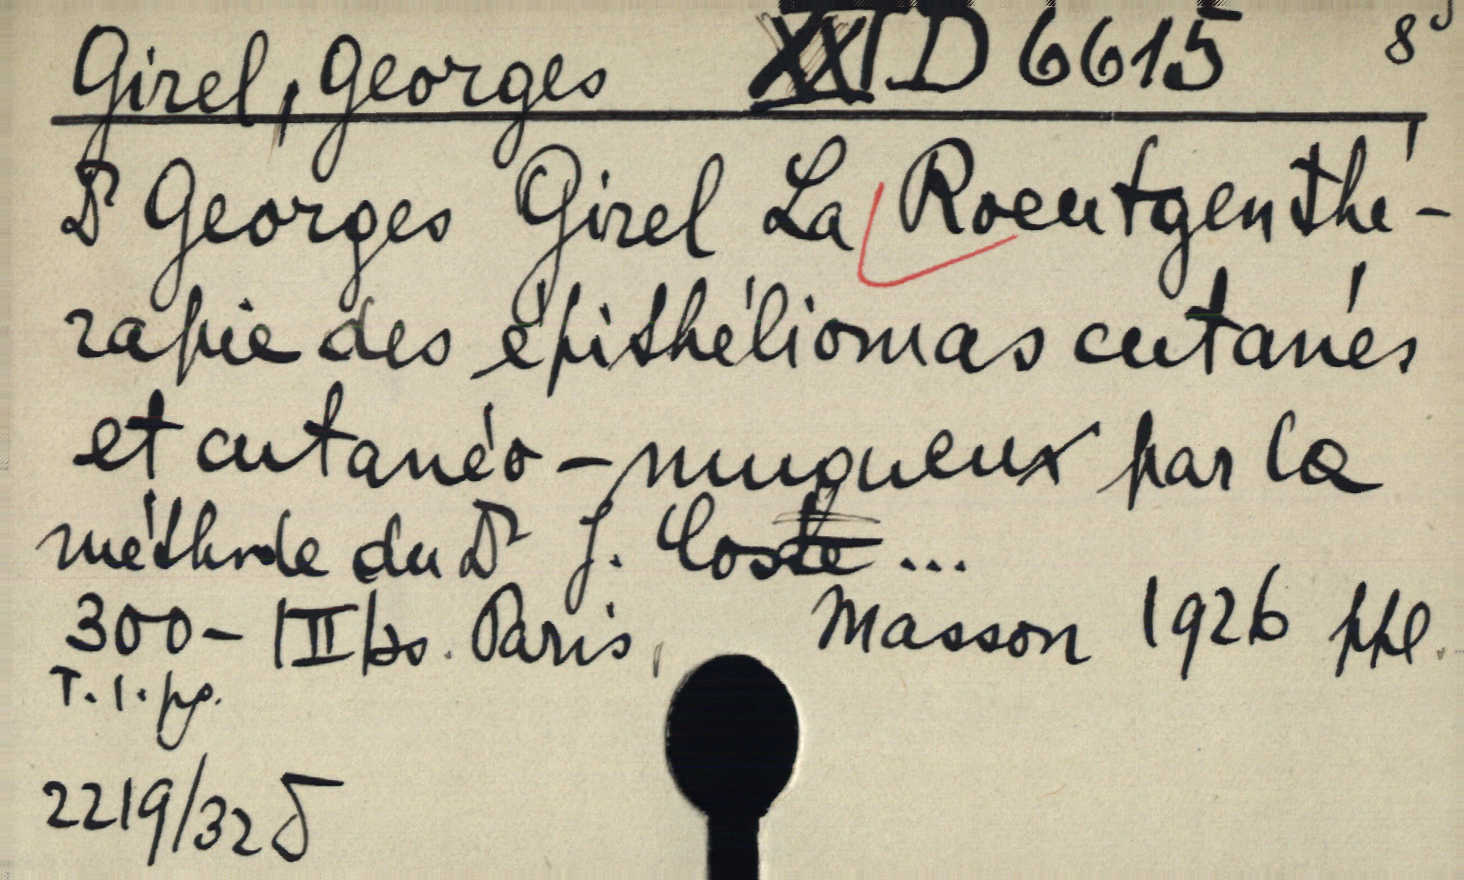 Girel, Georges XXI.D 6615 8°
Dr Georges Girel La Roentgenthé-
rapie des épithéliomas cutanés
et cutanéo-muqueux par la
méthode du Dr J. Coste ...
300- III bs. Paris, Masson 1926 ppl.
T. 1. pg.
2219/32 δ